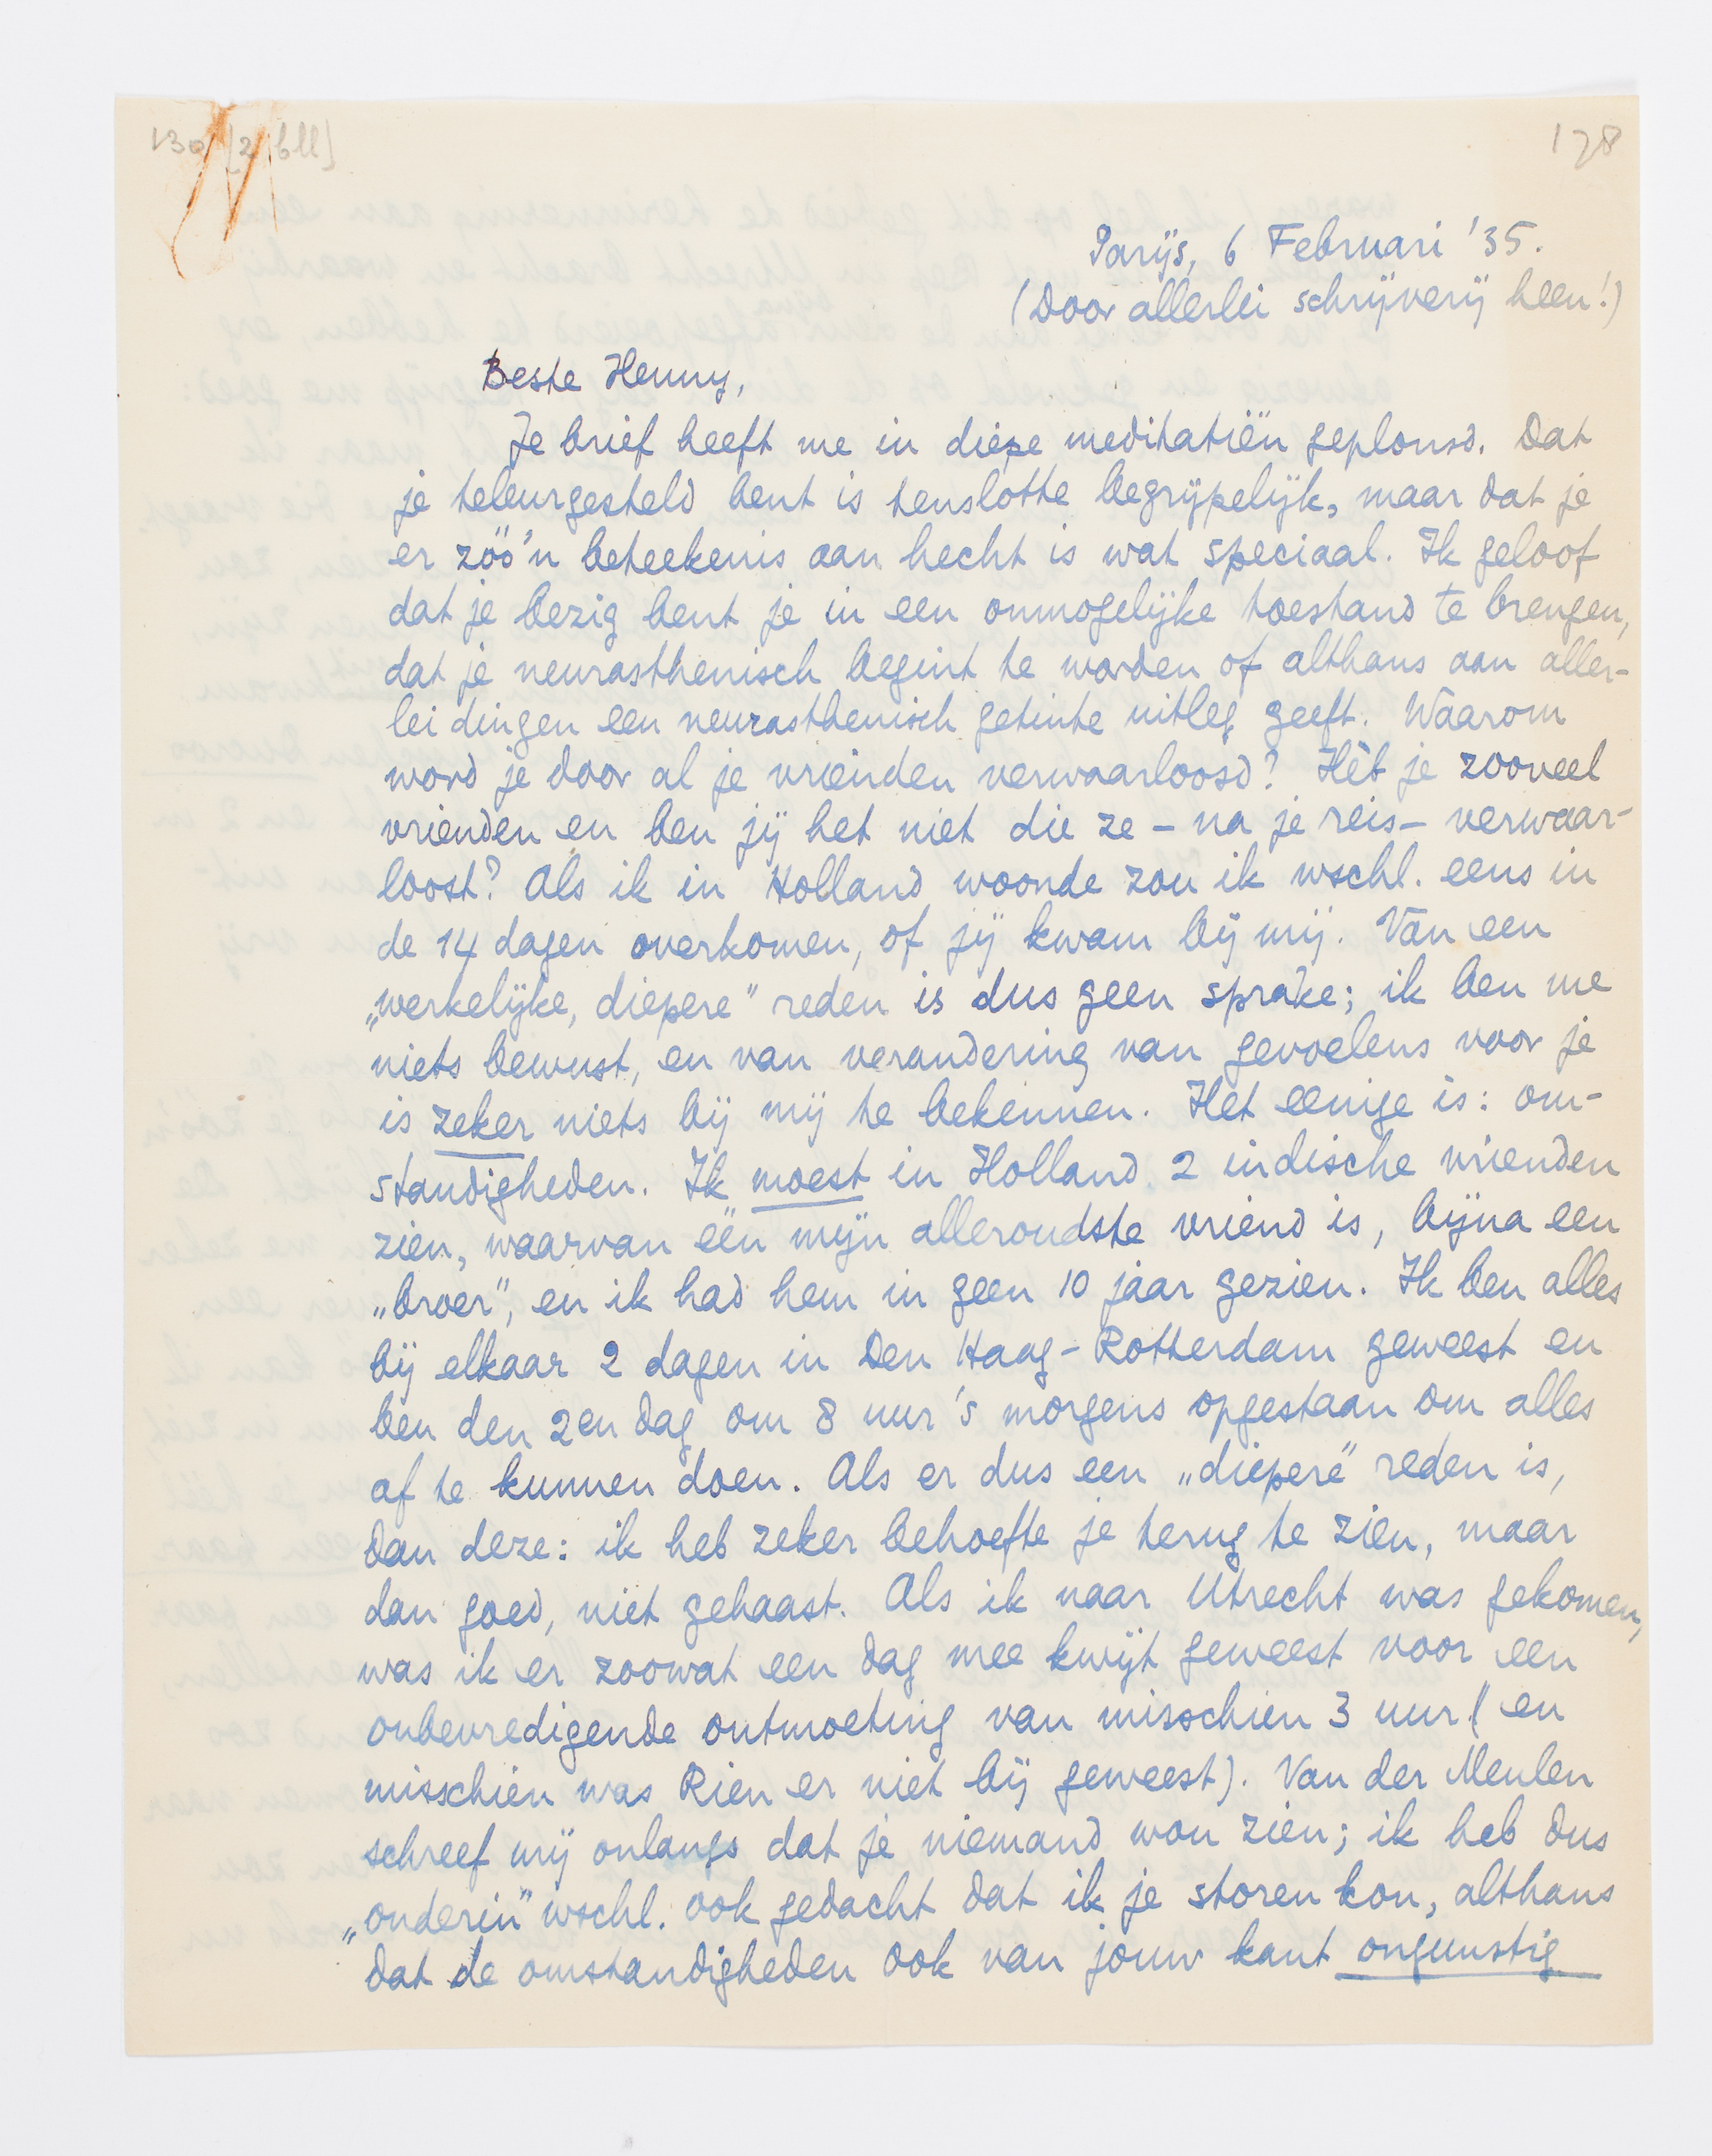 130 [2 bll]
178
Parijs, 6 Februari '35.
(Door allerlei schrijverij heen!)
Beste Henny,
Je brief heeft me in diepe meditatiën geplonsd. Dat
je teleurgesteld bent is tenslotte begrijpelijk, maar dat je
er zóó'n beteekenis aan hecht is wat speciaal. Ik geloof
dat je bezig bent je in een onmogelijke toestand te brengen,
dat je neurasthenisch begint te worden of althans aan aller-
lei dingen een neurasthenisch getinte uitleg geeft. Waarom
word je door al je vrienden verwaarloosd? Hèb je zooveel
vrienden en ben jij het niet die ze – na je reis – verwaar-
loost? Als ik in Holland woonde zou ik wschl. eens in
de 14 dagen overkomen, of jij kwam bij mij. Van een
„werkelijke, diepere" reden is dus geen sprake; ik ben me
niets bewust, en van verandering van gevoelens voor je
is zeker niets bij mij te bekennen. Het eenige is: om-
standigheden. Ik moest in Holland 2 indische vrienden
zien, waarvan één mijn alleroudste vriend is, bijna een
„broer", en ik had hem in geen 10 jaar gezien. Ik ben alles
bij elkaar 2 dagen in Den Haag - Rotterdam geweest en
ben den 2en dag om 8 uur 's morgens opgestaan om alles
af te kunnen doen. Als er dus een „diepere" reden is,
dan deze: ik heb zeker behoefte je terug te zien, maar
dan goed, niet gehaast. Als ik naar Utrecht was gekomen,
was ik er zoowat een dag mee kwijt geweest voor een
onbevredigende ontmoeting van misschien 3 uur (en
misschien was Rien er niet bij geweest). Van der Meulen
schreef mij onlangs dat je niemand wou zien; ik heb dus
„onderin" wschl. ook gedacht dat ik je storen kon, althans
dat de omstandigheden ook van jouw kant ongunstig